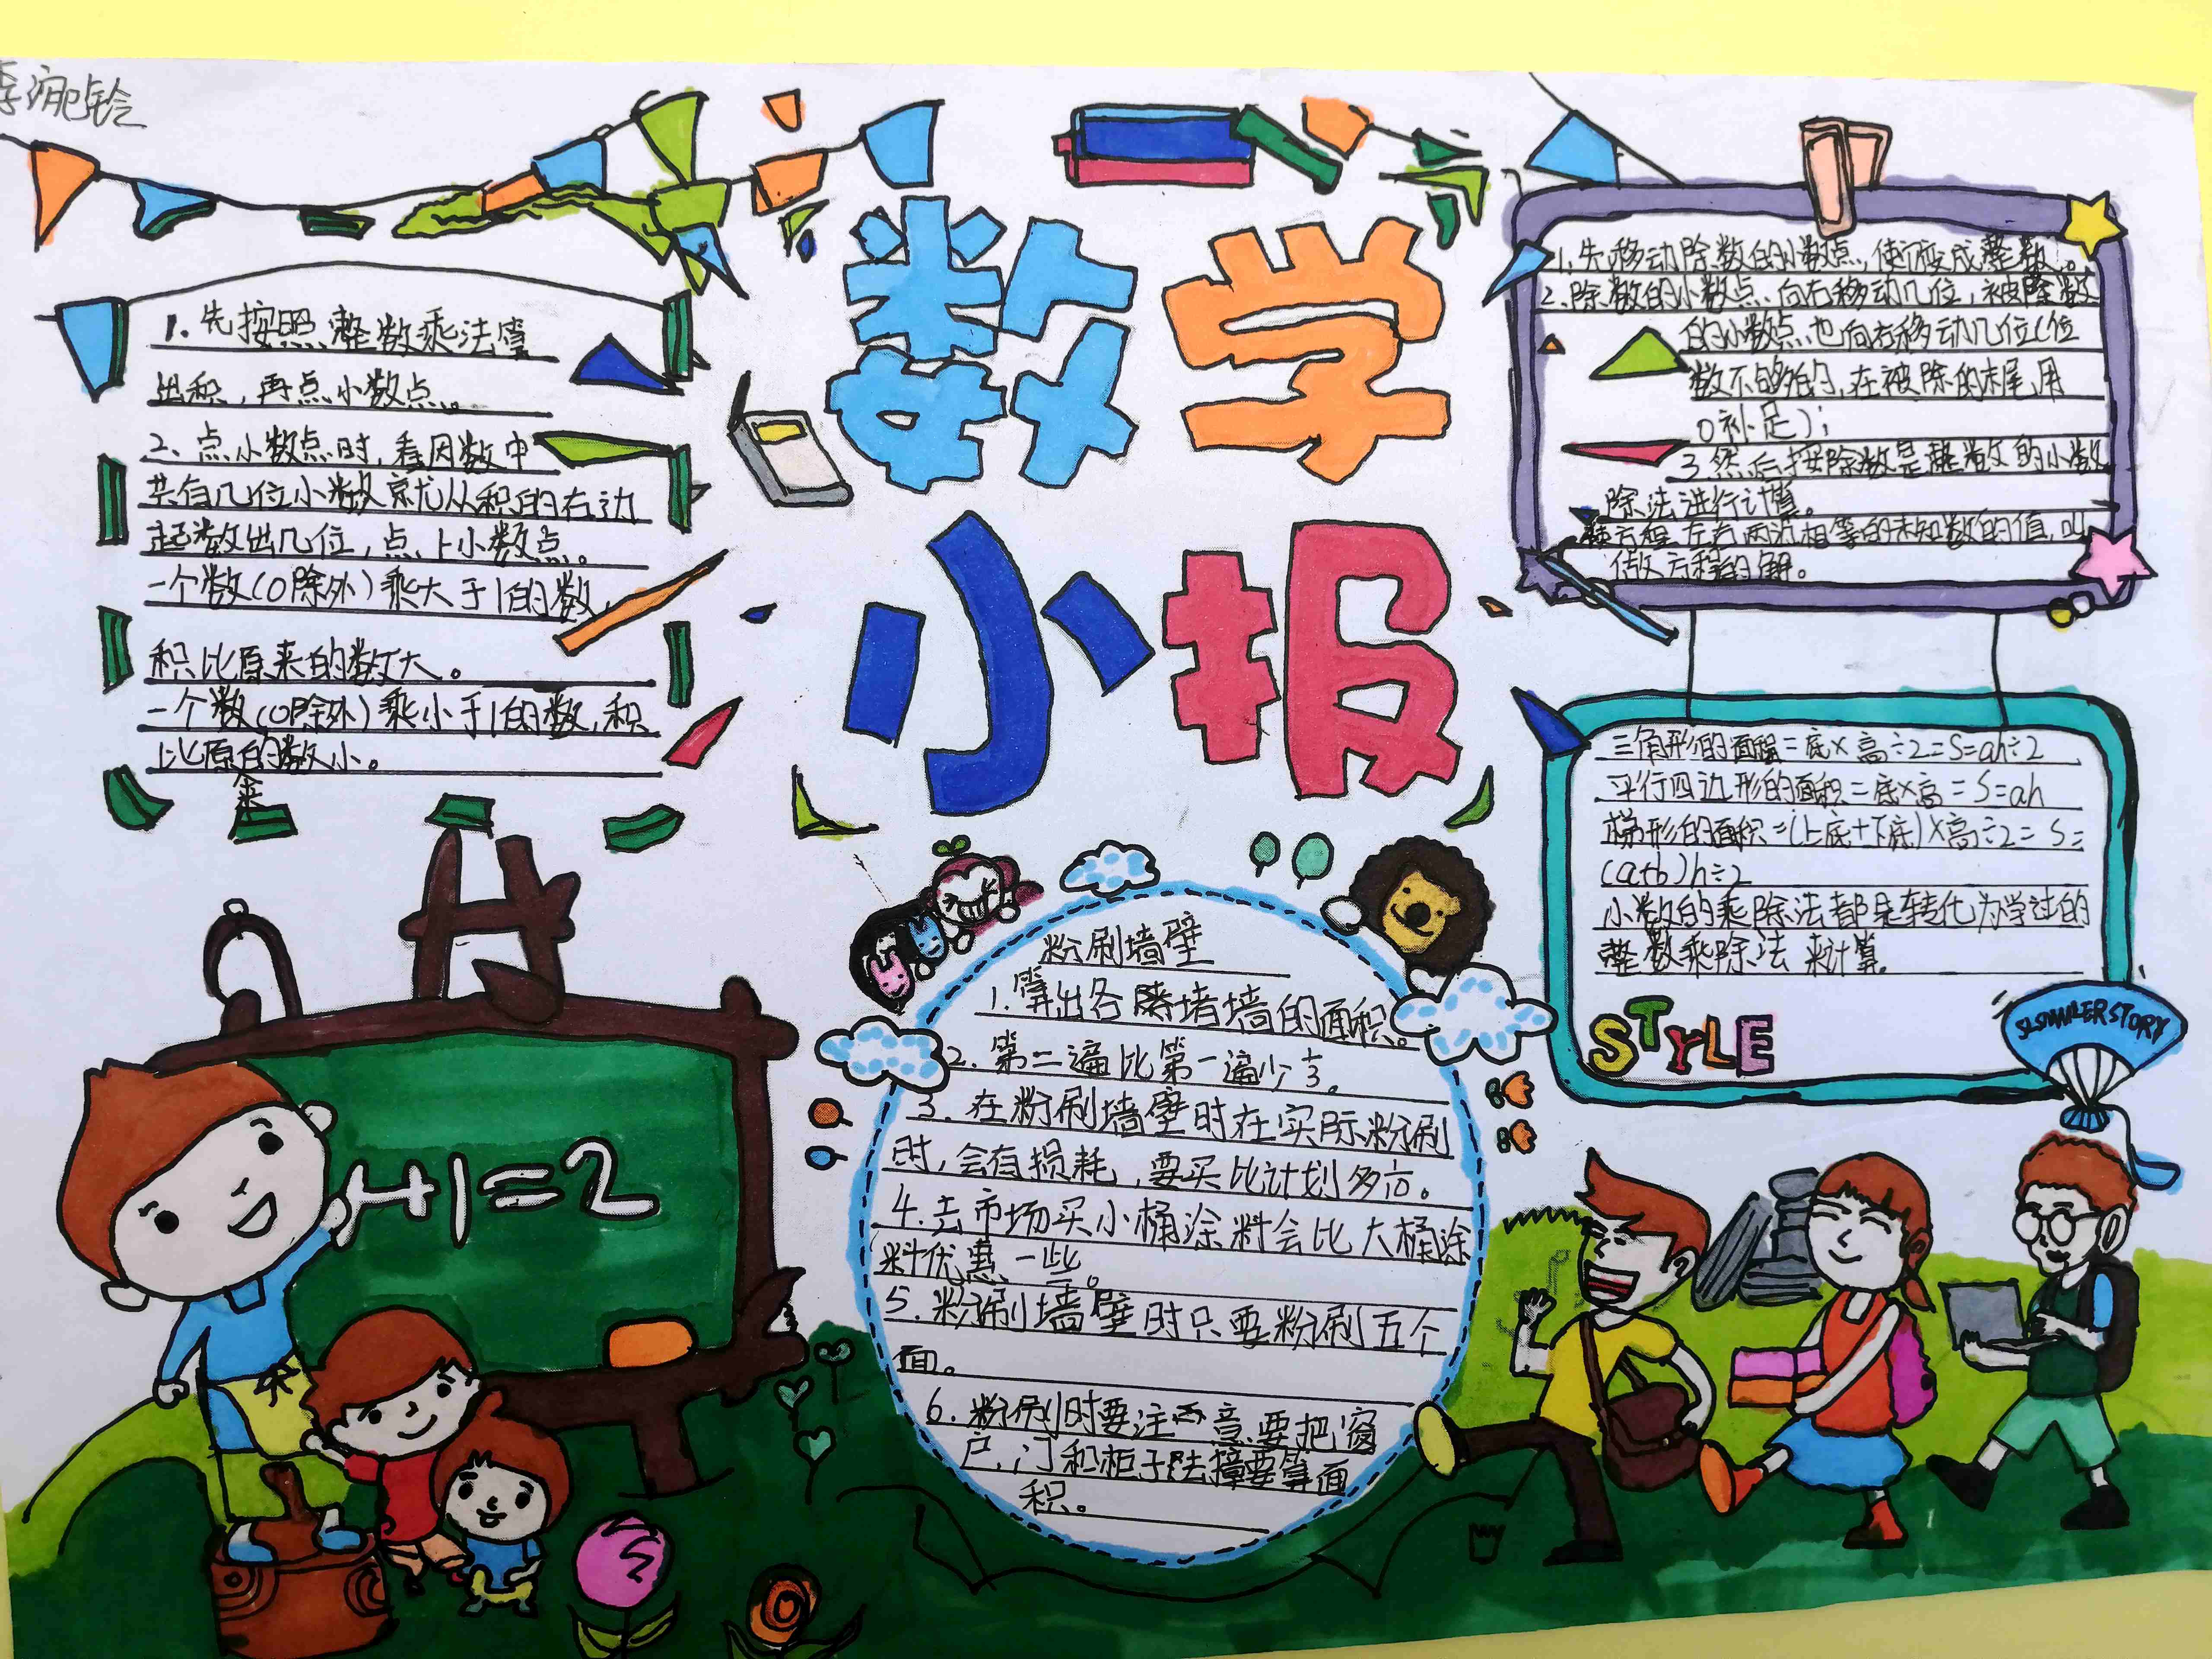 数学
小报
1.先按照整数乘法算
出积,再点小数点。
2.点小数点时,看因数中
共有几位小数就从积的右边
起数出几位,点上小数点。
一个数(0除外)乘大于1的数,
积比原来的数大。
一个数(0除外)乘小于1的数,积
比原来的数小。
1.先移动除数的小数点,使它变成整数。
2.除数的小数点向右移动几位,被除数
的小数点也向右移动几位(位
数不够的,在被除的末尾用
0补足);
3.然后按除数是整数的小数
除法进行计算。
使方程左右两边相等的未知数的值,叫
做方程的解。
三角形的面积=底×高÷2=S=ah÷2
平行四边形的面积=底×高=S=ah
梯形的面积=(上底+下底)×高÷2=S=
(a+b)h÷2
小数的乘除法都是转化为学过的
整数乘除法来计算。
STYLE
1+1=2
粉刷墙壁
1.算出各 堵墙的面积。
2.第二遍比第一遍少
3.在粉刷墙壁时在实际粉刷
时,会有损耗,要买比计划多
4.去市场买小桶涂料会比大桶涂
料优惠一些。
5.粉刷墙壁时只要粉刷五个
面。
6.粉刷时要注意要把窗
户,门和柜子 要算面
积。